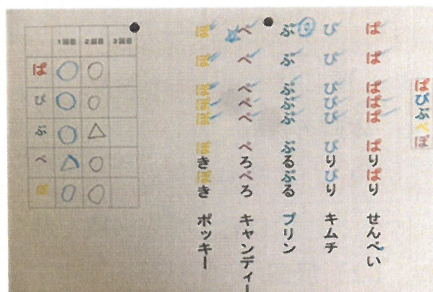 ぱぴぷぺぽ
ぱ ぱ ぱぱぱ ぱりぱり せんべい
ぴ ぴ ぴぴぴ ぴりぴり キムチ
ぷ ぷ ぷぷぷ ぷるぷる プリン
ぺ ぺ ぺぺぺ ぺろぺろ キャンディー
ぽ ぽ ぽぽぽ ぽきぽき ポッキー
1回目 2回目 3回目
ぱ
ぴ
ぷ
ぺ
ぽ